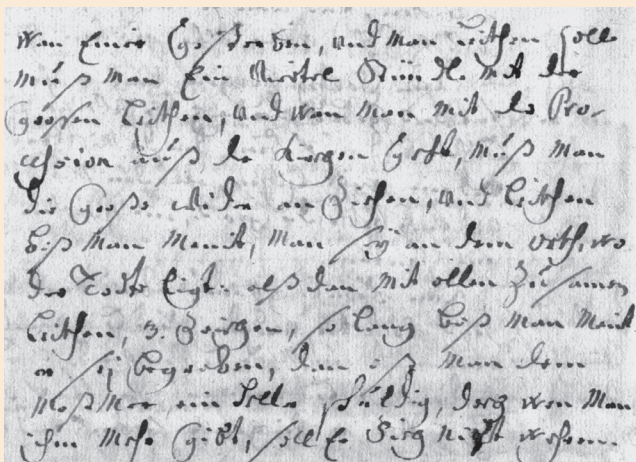 Wan Einer Gestorben, und man leithen soll
muß man Ein Viertel Stündl mit der
grossen leithen, und wan man mit der Pro-
cession auß der Kirchen geht, muß man
die große wider an Ziehen, und leithen
biß man meint, man sey an dem orth, wo
der Todte ligt. alß dan mit allen Zusamen
leithen, 3. Zeichen, so lang biß man meint
er sey begraben, dan ist man dem
Meßmer ein schuldig, wan man
ihm mehr gibt, soll Er sich nicht wehren.